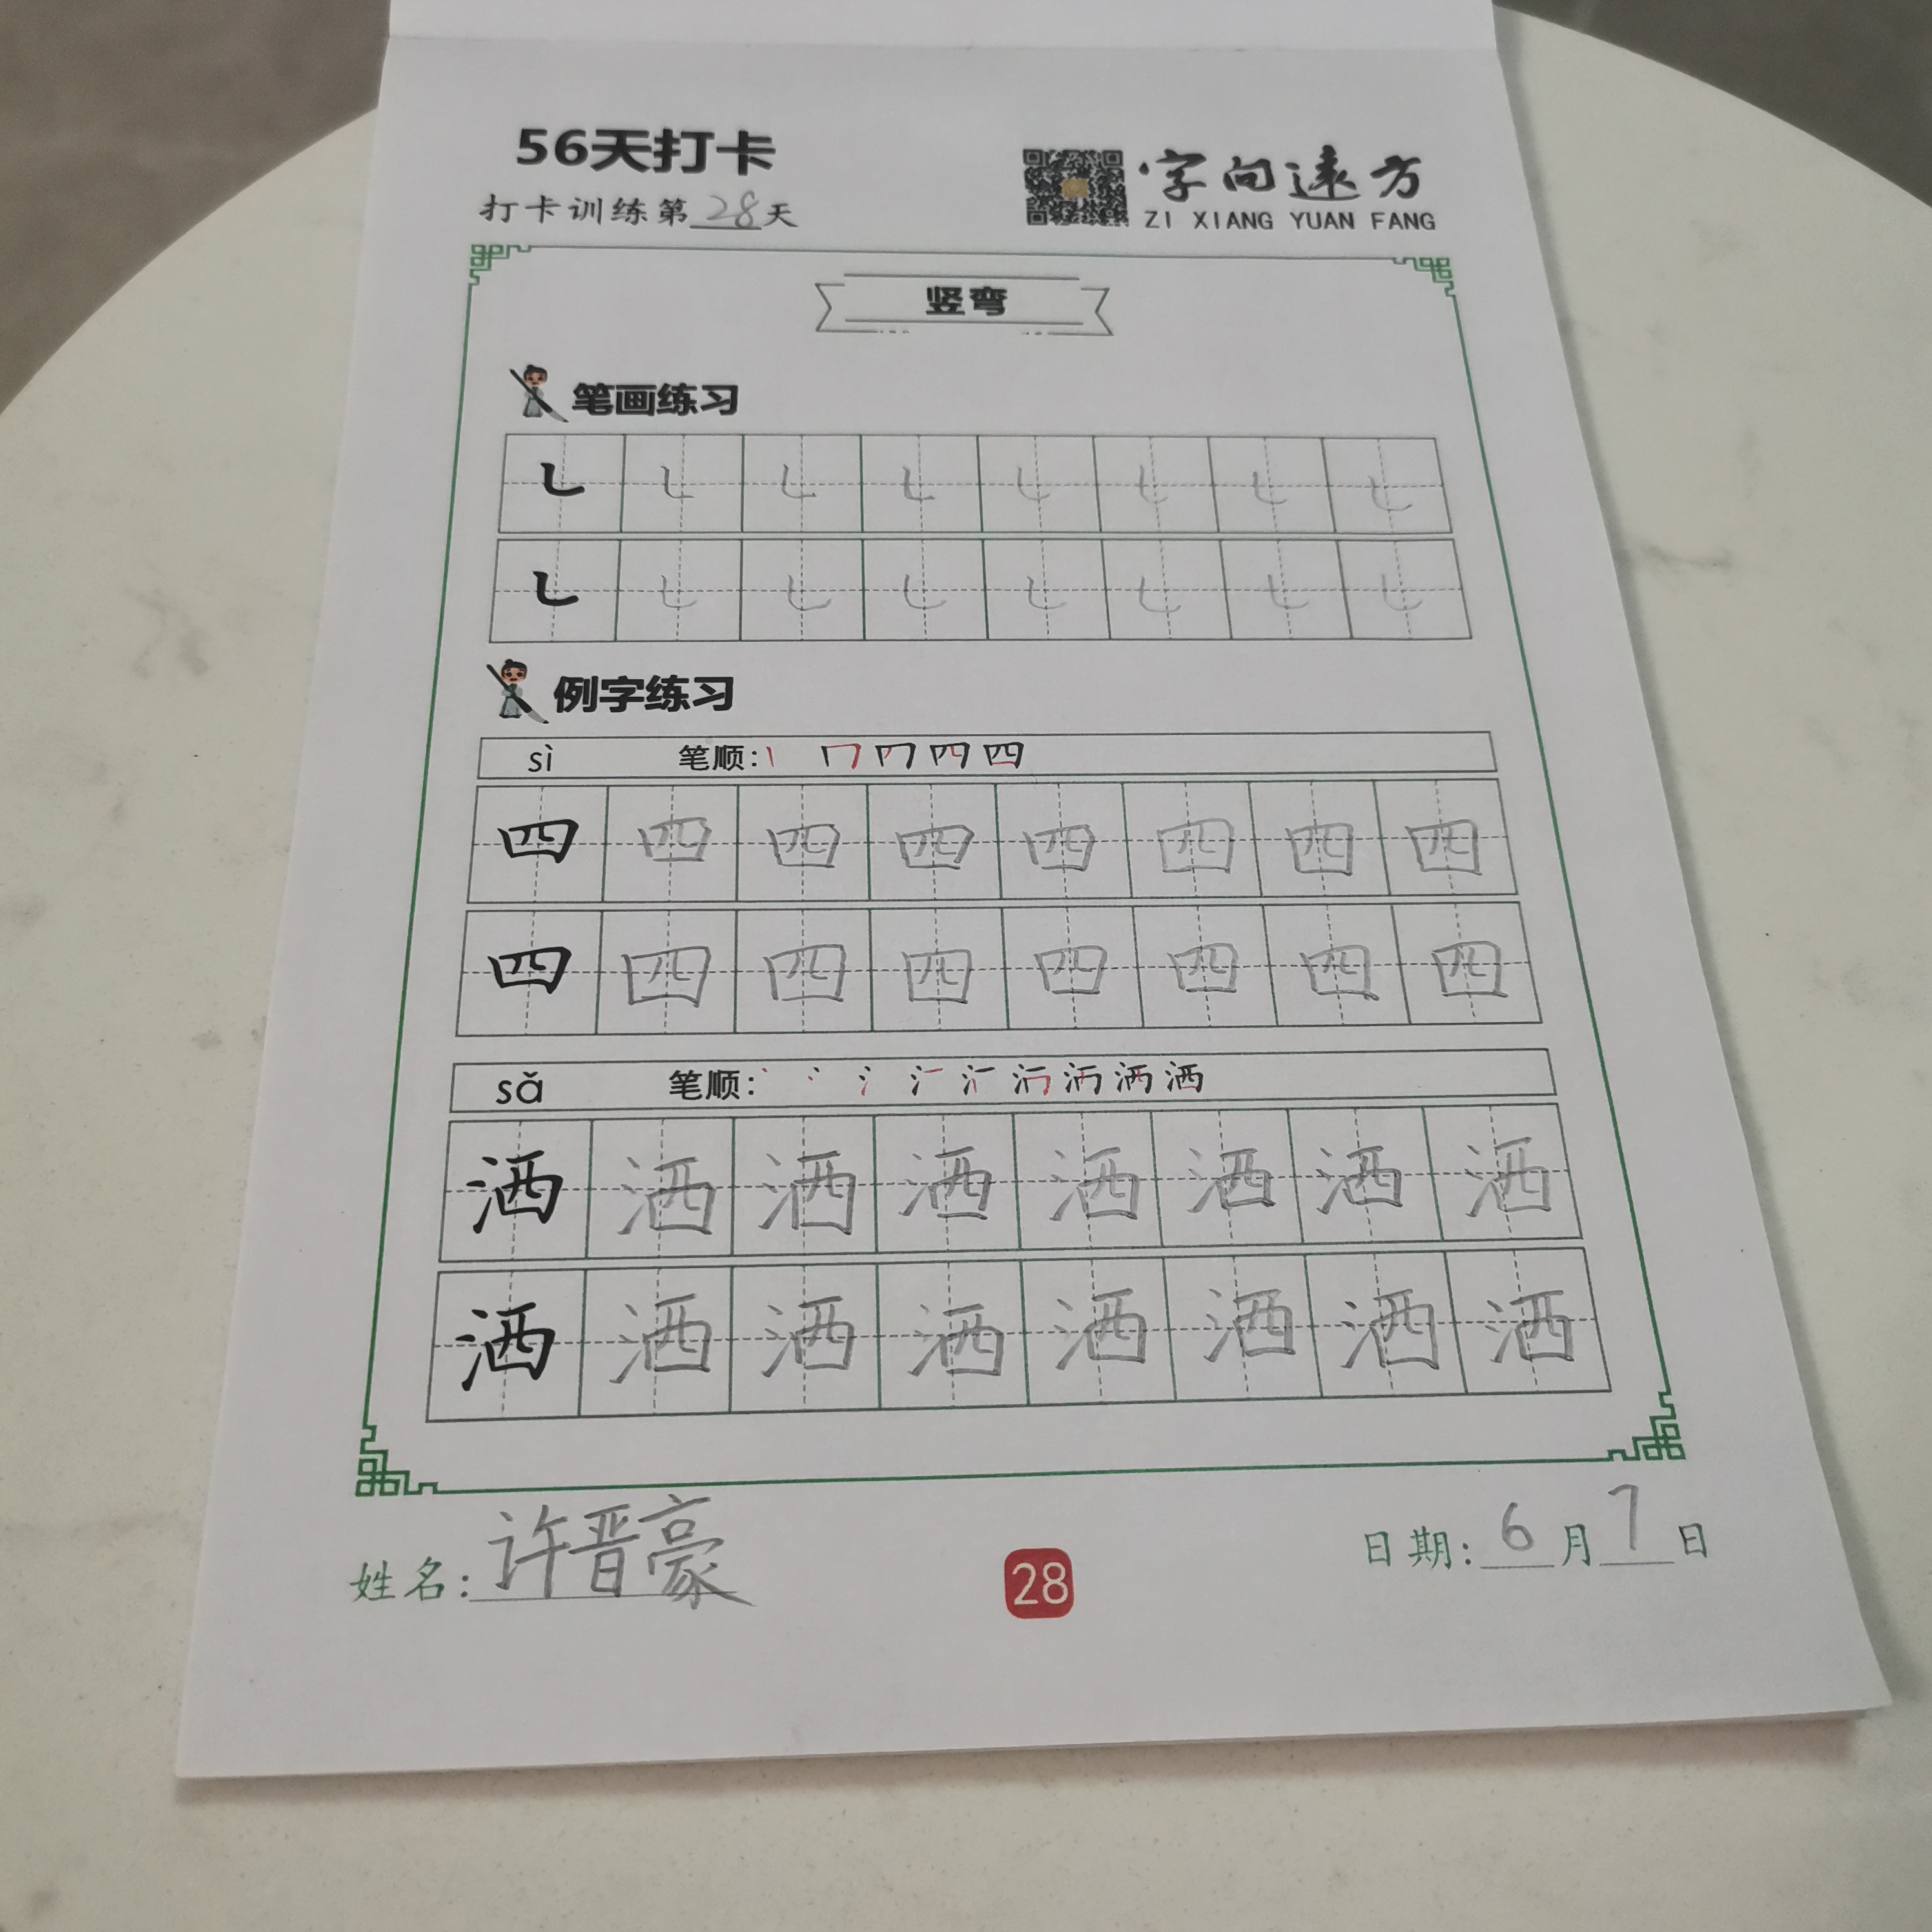 56天打卡
打卡训练第28天
字向远方
ZI XIANG YUAN FANG
竖弯
笔画练习
㇄ ㇄ ㇄ ㇄ ㇄ ㇄ ㇄ ㇄
㇄ ㇄ ㇄ ㇄ ㇄ ㇄ ㇄ ㇄
例字练习
sì 笔顺: 四
四 四 四 四 四 四 四 四
四 四 四 四 四 四 四 四
sǎ 笔顺: 洒
洒 洒 洒 洒 洒 洒 洒 洒
洒 洒 洒 洒 洒 洒 洒 洒
姓名: 许晋豪
28
日期: 6月7日